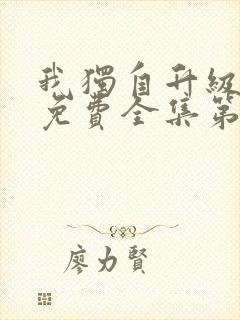 我獨自升級
免費全集第
廖力賢